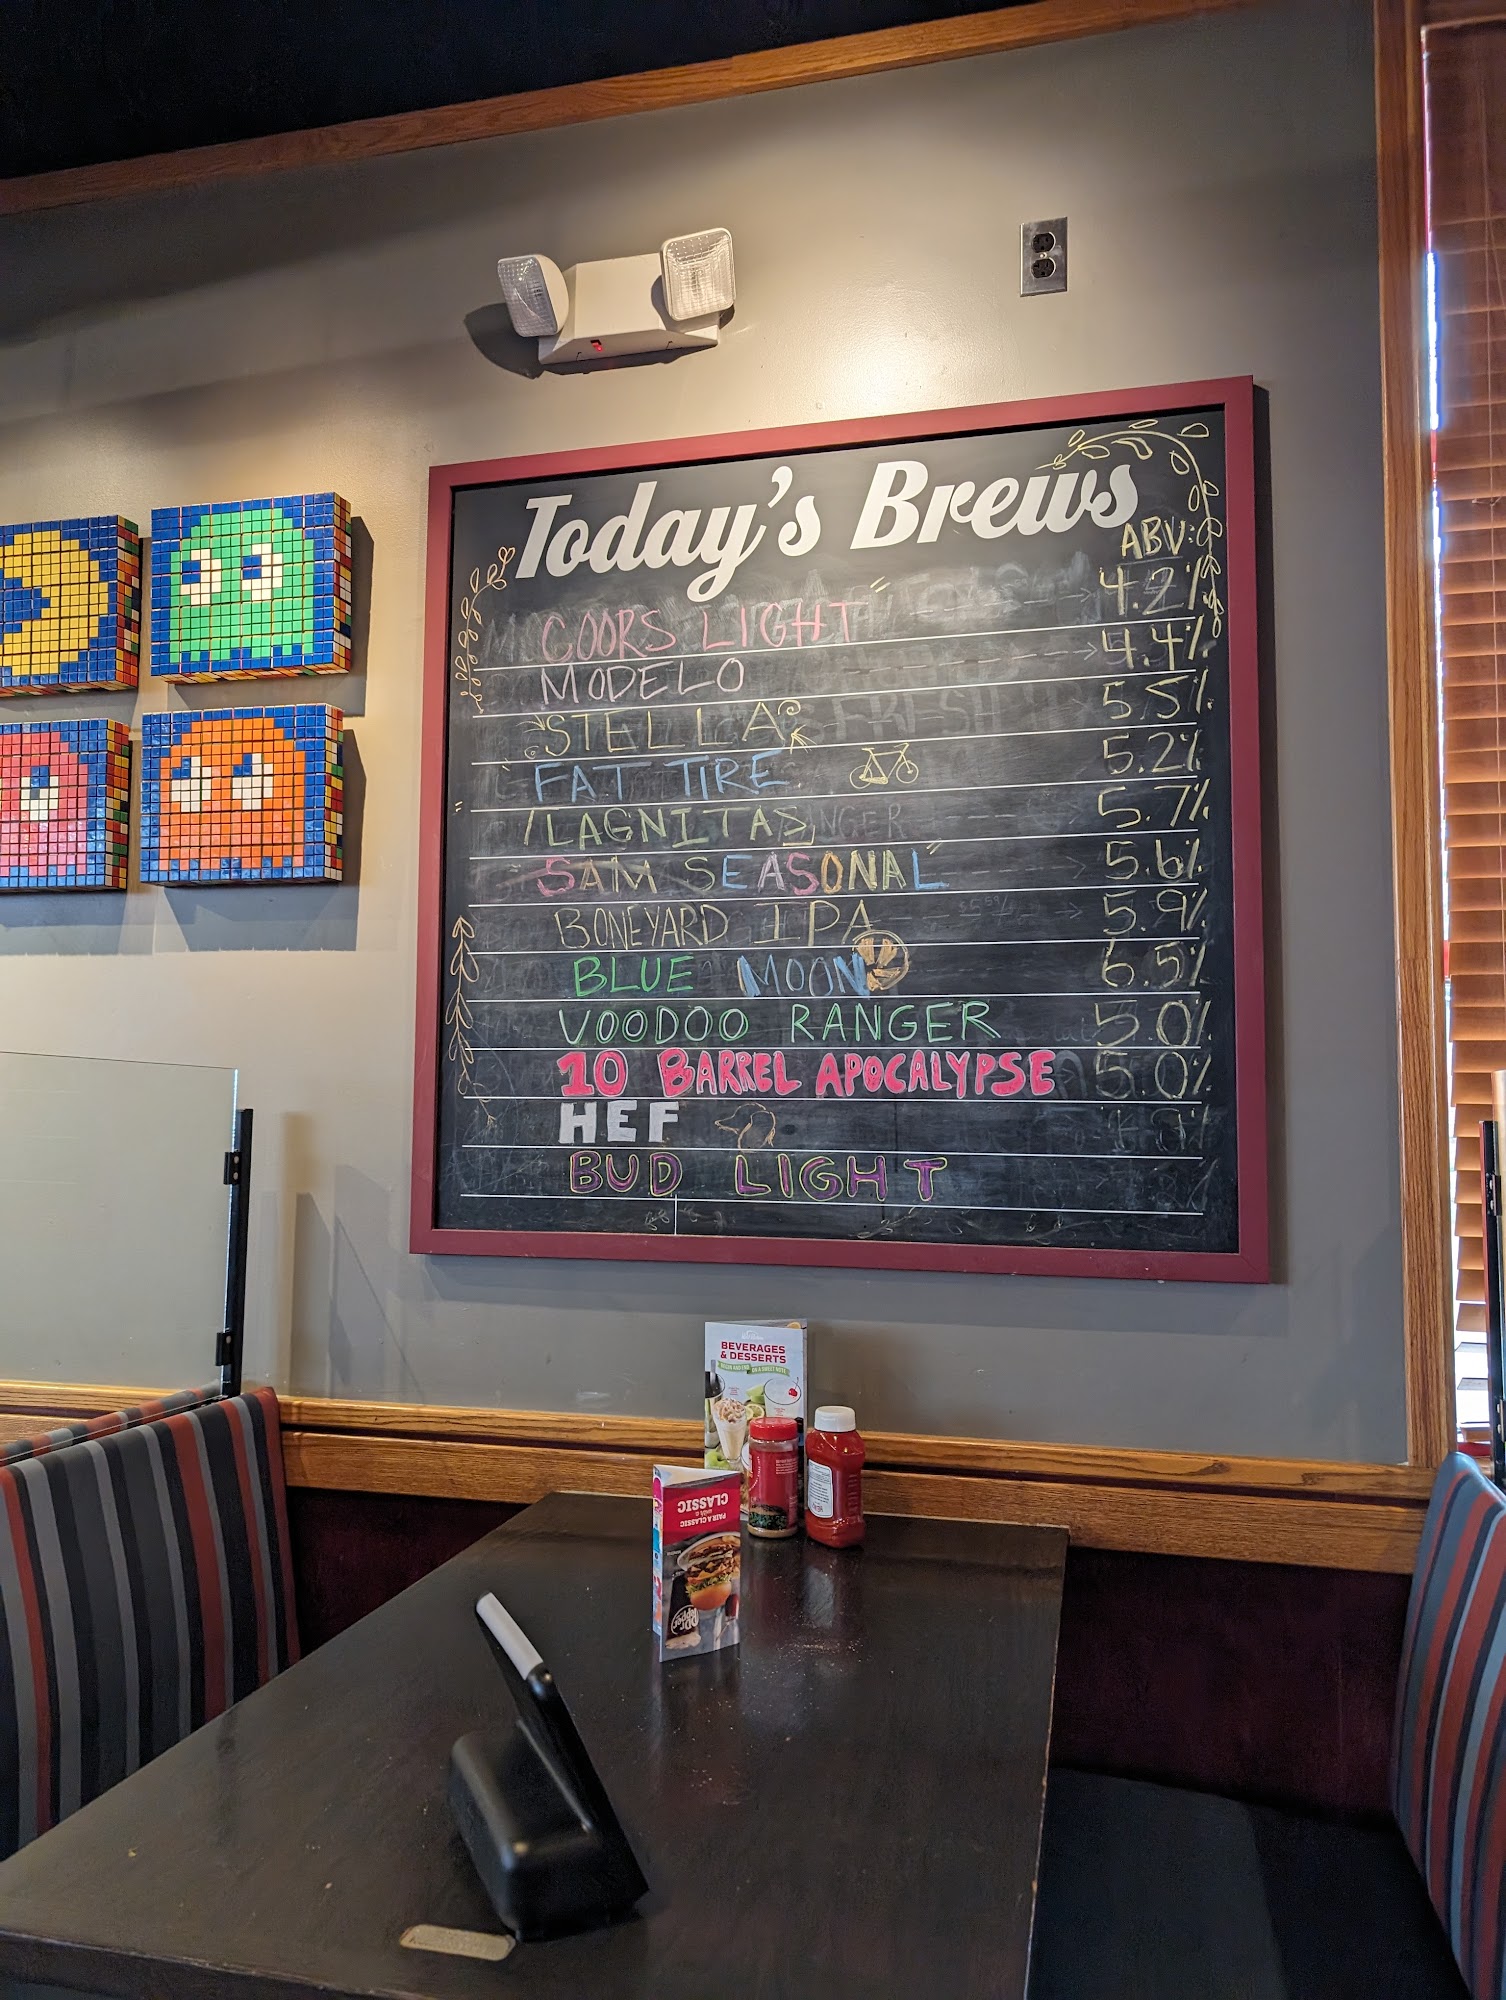 Today's Brews
ABV:
COORS LIGHT 4.2%
MODELO 4.4%
STELLA 5.5%
FAT TIRE 5.2%
LAGNITAS 5.7%
SAM SEASONAL 5.6%
BONEYARD IPA 5.9%
BLUE MOON 6.5%
VOODOO RANGER 5.0%
10 BARREL APOCALYPSE 5.0%
HEF
BUD LIGHT
BEVERAGES
& DESSERTS
PAIR A CLASSIC
with a
CLASSIC
Dr Pepper